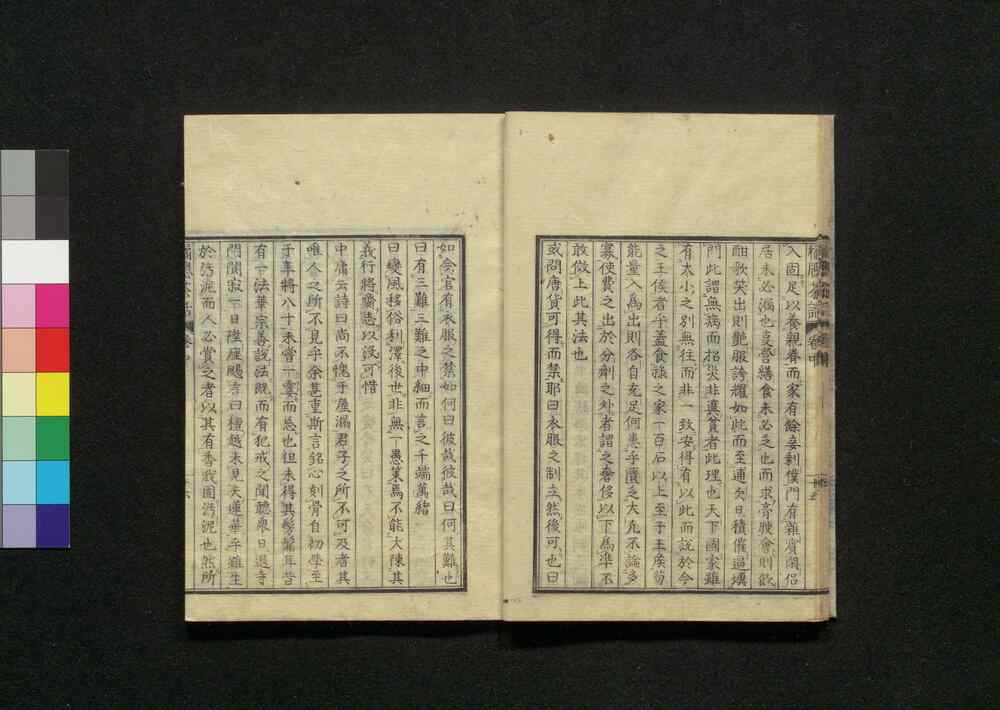 入固足以養親眷而家有餘妾剩僕門有雜賓閑侶
居未必漏也妄營繕食未必乏也而求膏腴會則歌
酣歌笑出則艶服誇耀如此而至逋欠日積催逼塡
門此謂無病而招灸非眞貧者此理也天下國家雖
有大小之別無往而非一致安得有以此而説於今
之王侯者乎蓋食祿之家一百石以上至于王侯苟
能量入爲出則各自充足何患乎匱乏大凡不論多
寡使費之出於分劑之外者謂之奢侈以下爲準不
敢傚上此其法也
或問唐貨可得而禁耶曰衣服之制立然後可也曰
如今官有衣服之禁如何曰彼哉彼哉曰何其難也
曰有三難三難之中細而言之千端萬緒
曰變風移俗利澤後世非無一愚策焉不能大陳其
義行將齎志以沒可惜
中庸云詩曰尚不愧乎屋漏君子之所不可及者其
唯人之所不見乎余甚重斯言銘心刻骨自初學至
于年將八十未嘗一妄而忘也但未得其髣髴耳昔
有一法華宗善説法既而有犯戒之聞聽衆日退寺
門闃寂一日陞座颺言曰檀越未見夫蓮華乎雖生
於汚泥而人必賞之者以其有香我固汚泥也然所